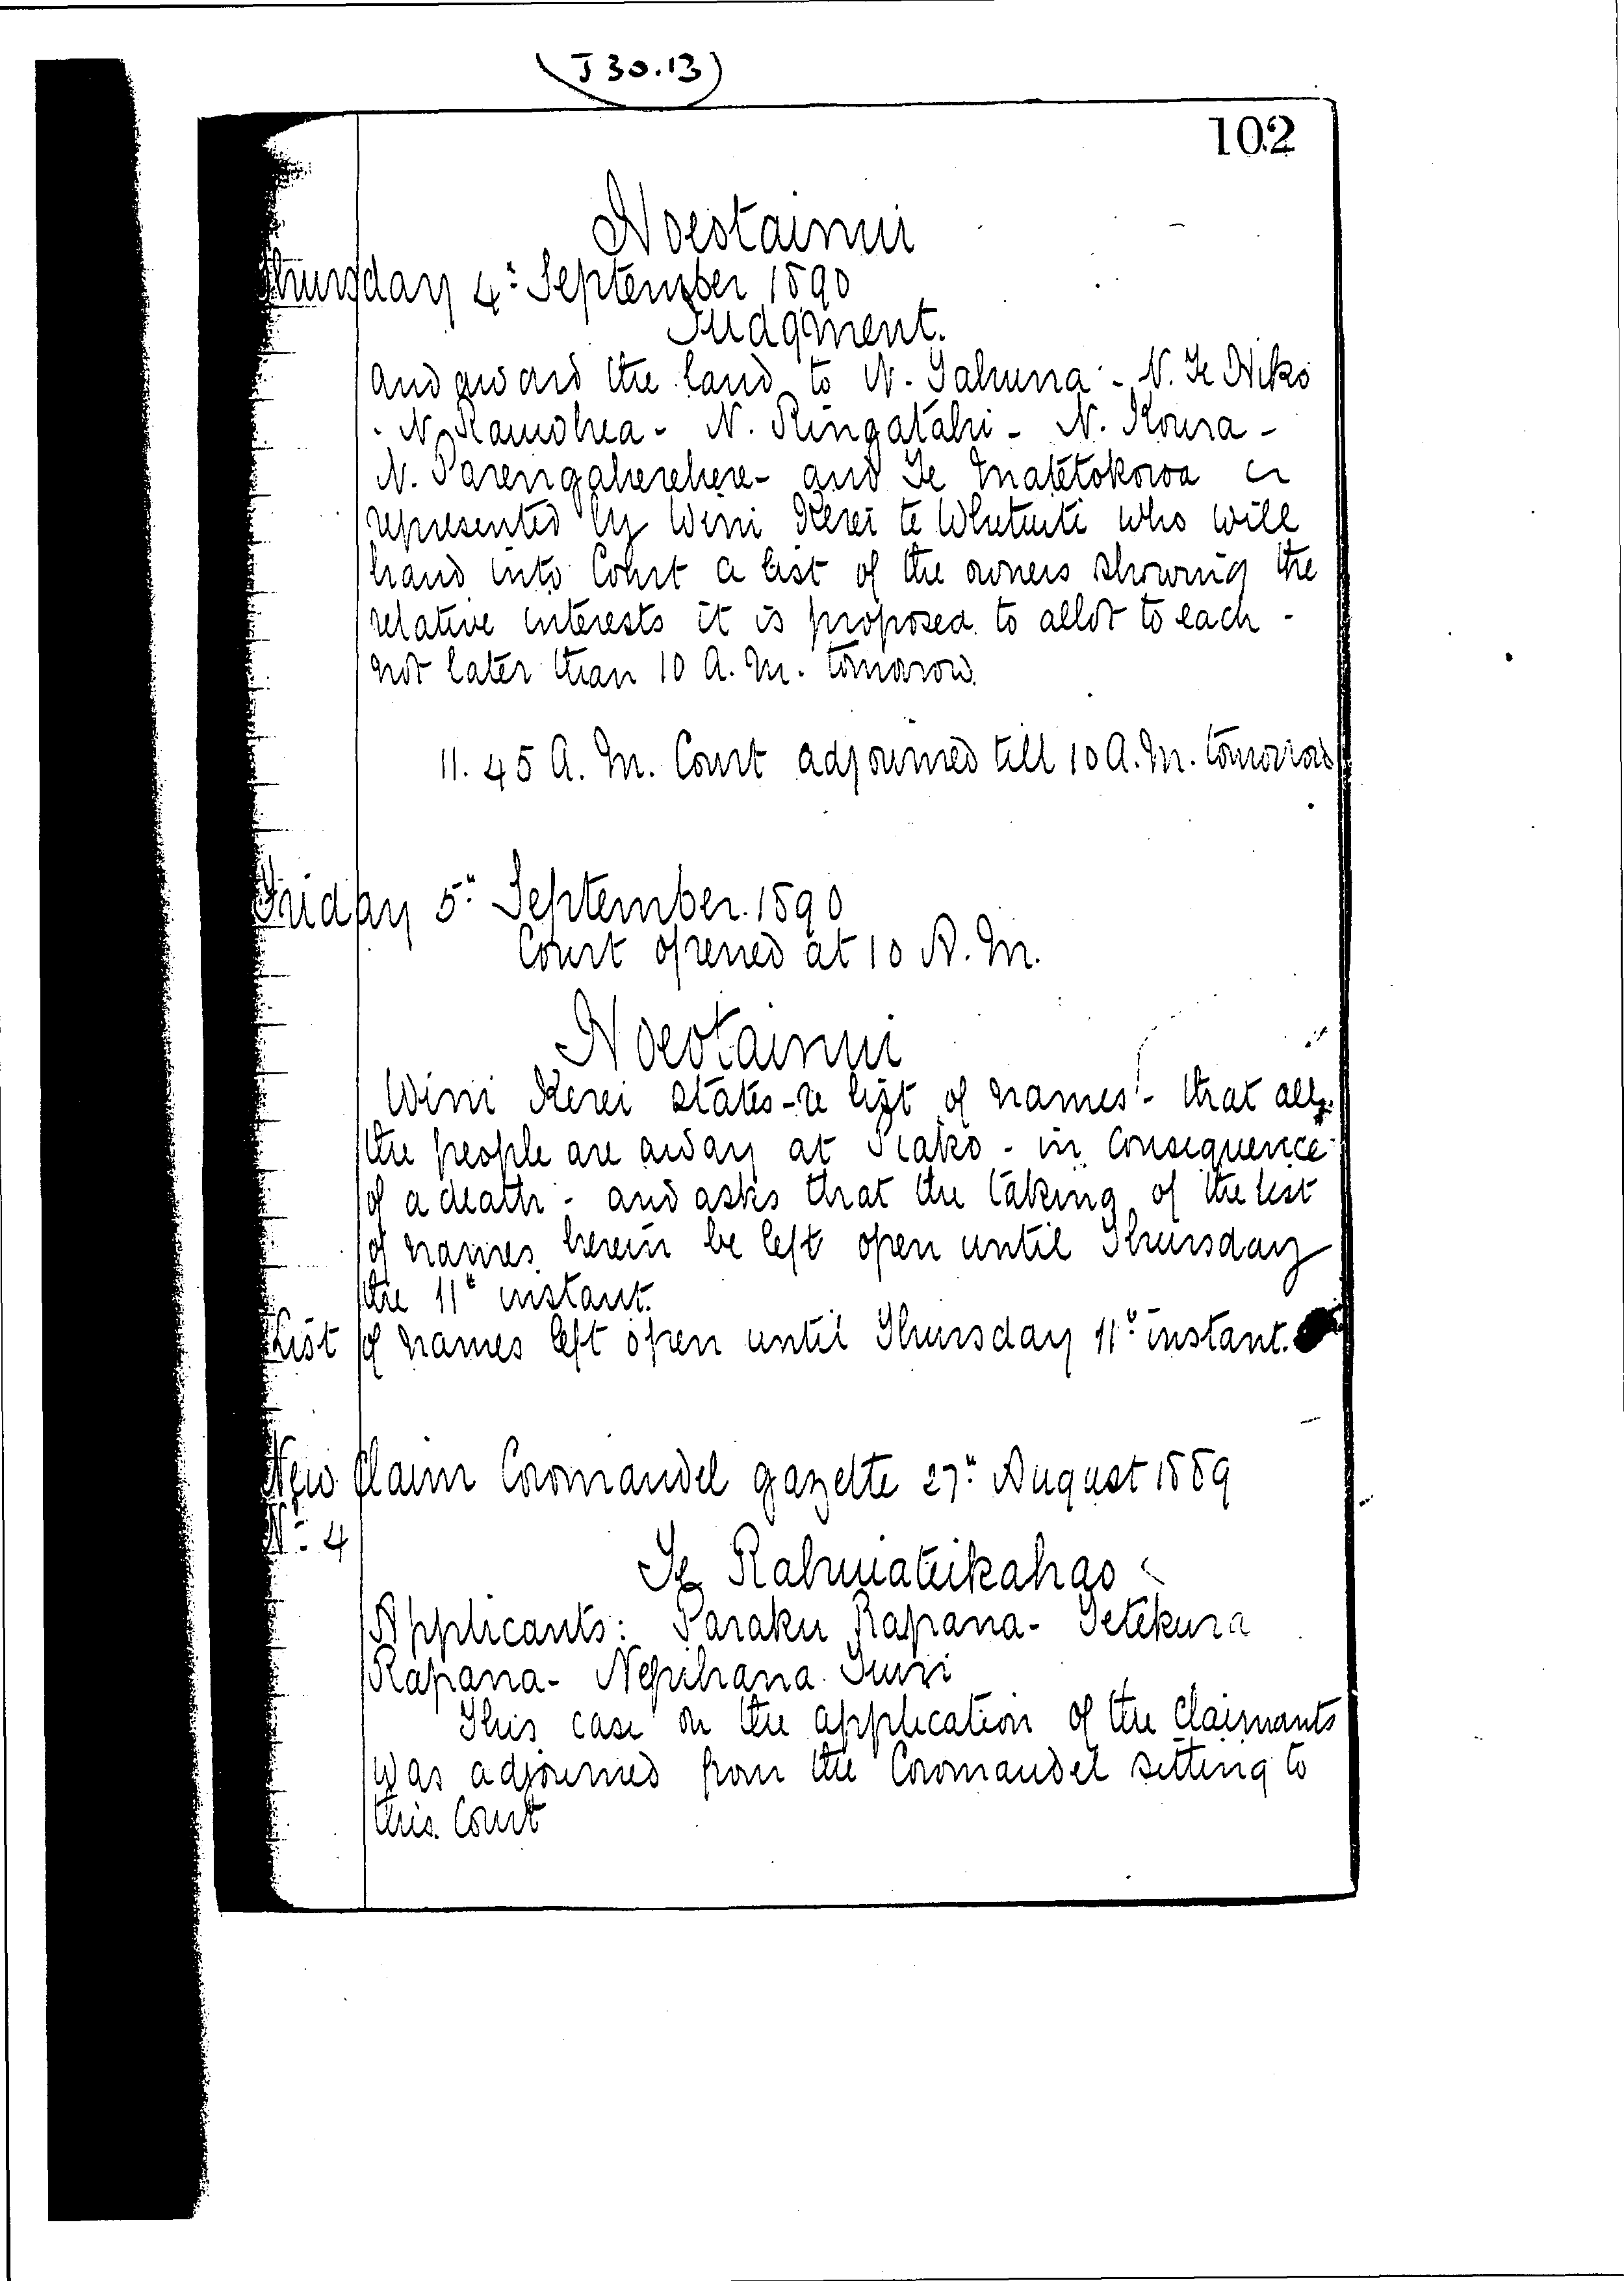 (J 30.13)
102
Noeotainui
Thursday 4th September 1890
Judgment.
and award the land to N. Tahuna - N. Te Hiko
- N. Kauwhea - N. Ringatahi - N. Koura -
N. Parengaherehere - and Te Matetokoroa as
represented by Wini Kerei te Whetuiti who will
hand into Court a list of the owners showing the
relative interests it is proposed to allot to each -
not later than 10 A.M. tomorow.
11.45 A.M. Court adjourned till 10 A.M. tomorrow
Friday 5th September 1890
Court opened at 10 A.M.
Noeotainui
Wini Kerei states - re list of names - that all
the people are away at Piako - in consequence
of a death - and asks that the taking of the list
of names herein be left open until Thursday
the 11th instant.
List of names left open until Thursday 11th instant.
New Claim Coromandel gazette 27th August 1889
No 4
Te Rahuiateikahao
Applicants: Paraku Rapana - Tetekura
Rapana - Nepihana Tuiri
This case on the application of the claimants
was adjourned from the Coromandel sitting to
this Court